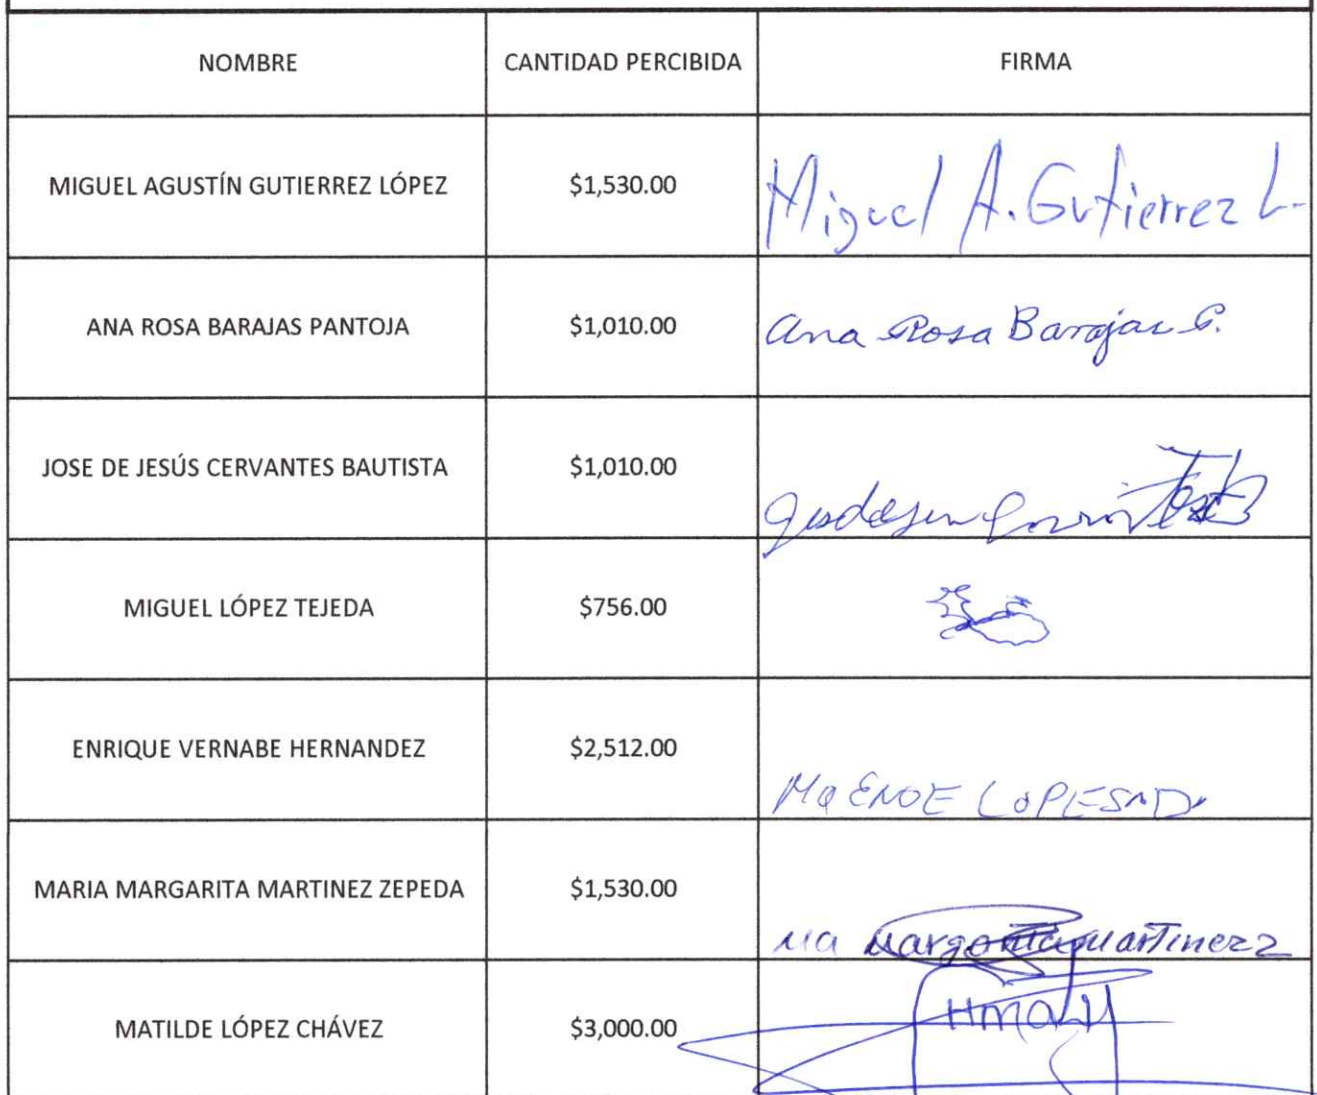 NOMBRE CANTIDAD PERCIBIDA FIRMA
MIGUEL AGUSTÍN GUTIERREZ LÓPEZ $1,530.00 Miguel A. Gutierrez L.
ANA ROSA BARAJAS PANTOJA $1,010.00 Ana Rosa Barajas P.
JOSE DE JESÚS CERVANTES BAUTISTA $1,010.00
MIGUEL LÓPEZ TEJEDA $756.00
ENRIQUE VERNABE HERNANDEZ $2,512.00 Ma ENOE LOPES
MARIA MARGARITA MARTINEZ ZEPEDA $1,530.00 Ma Margarita Martinez Z
MATILDE LÓPEZ CHÁVEZ $3,000.00